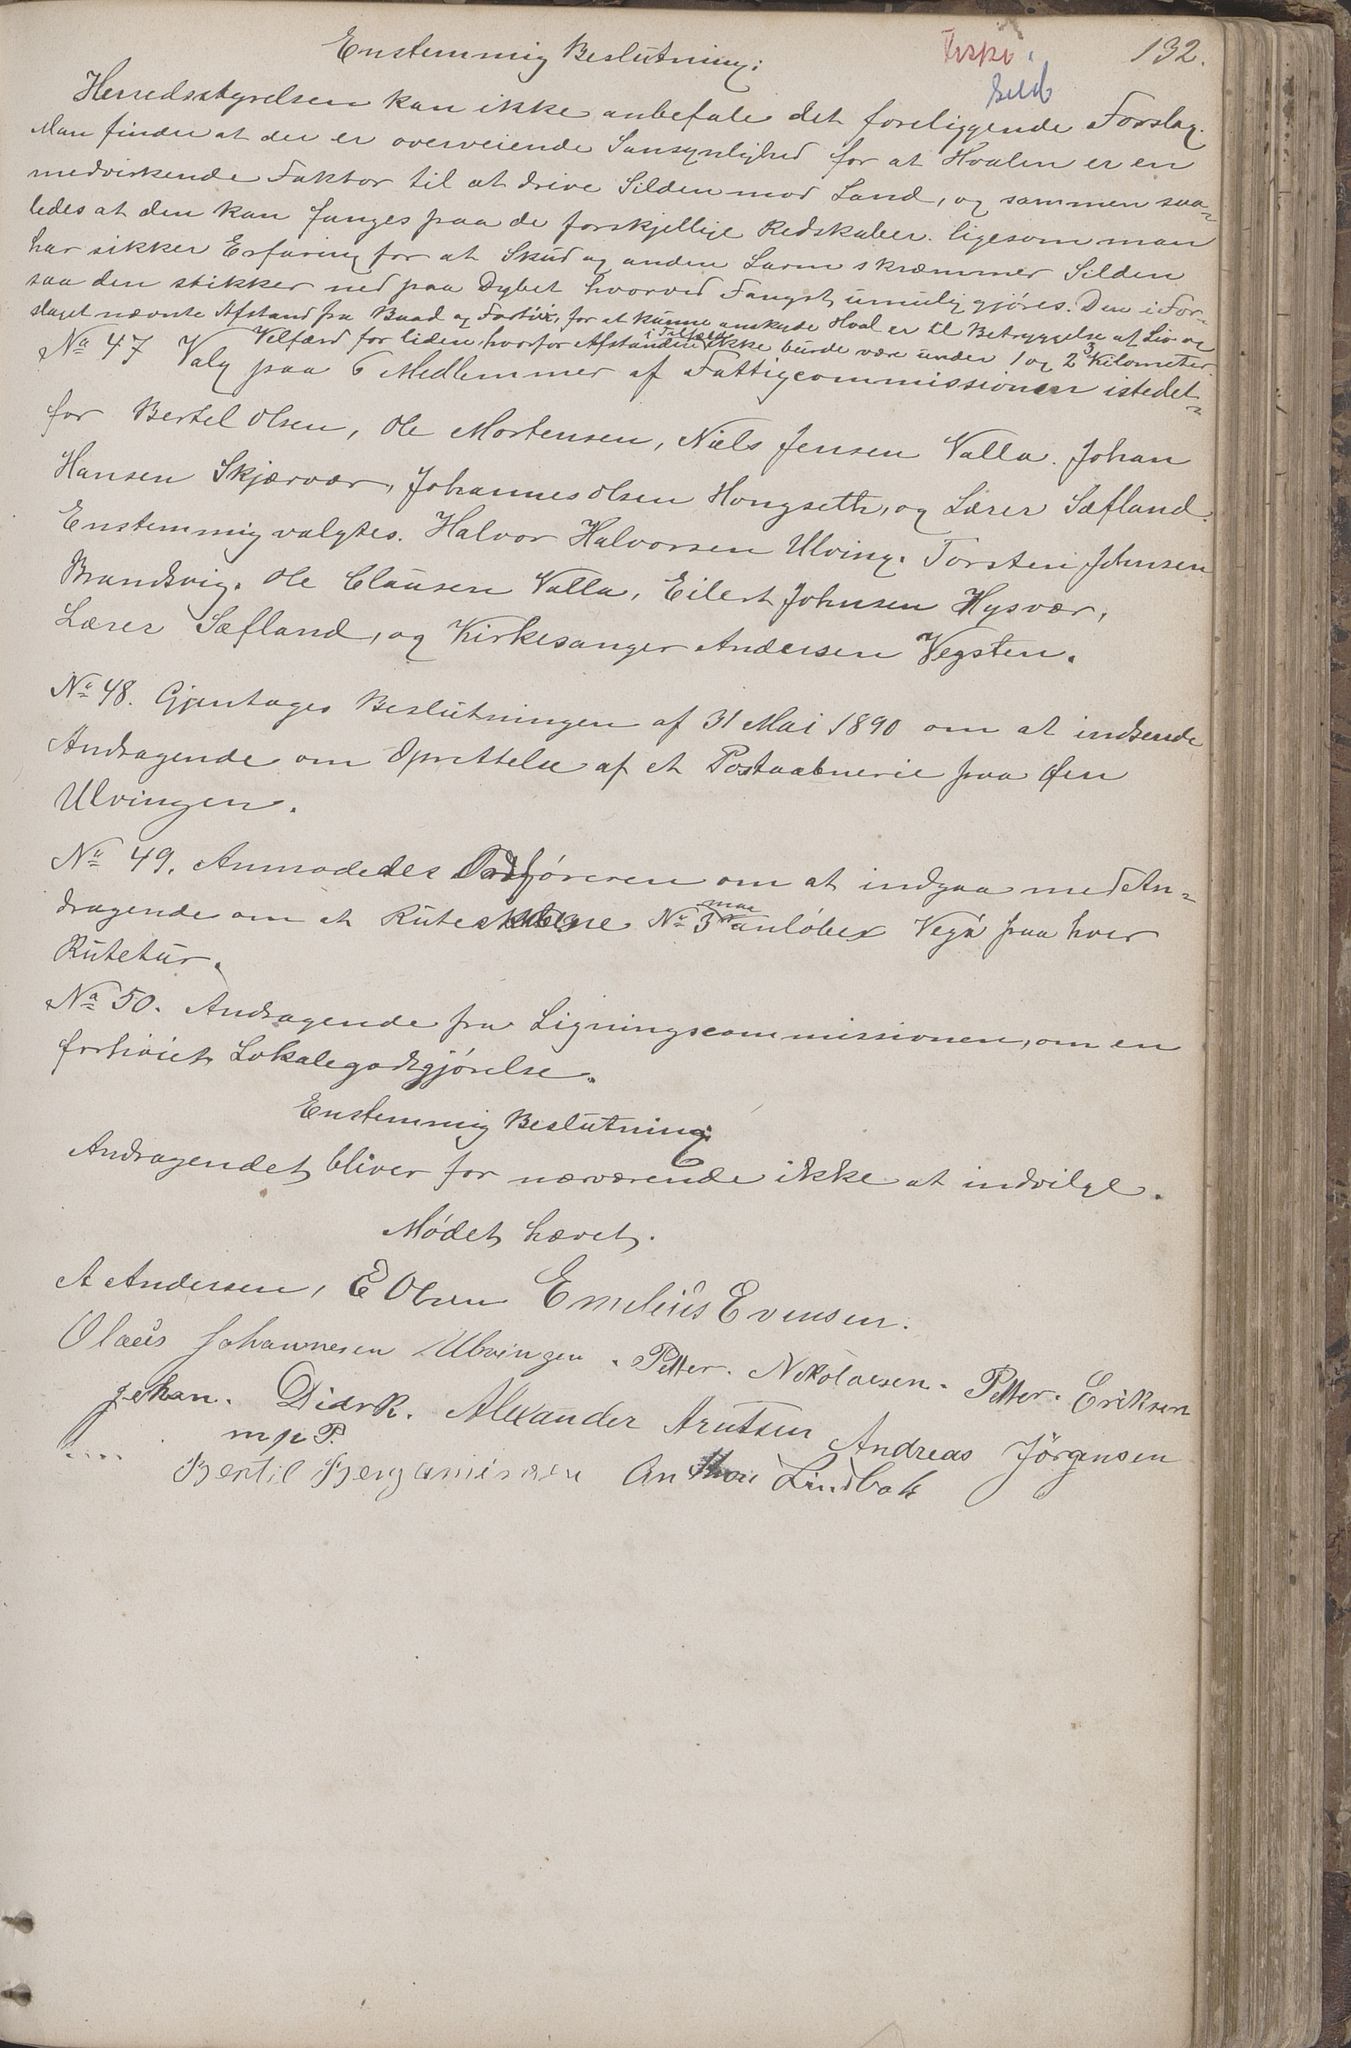 132.
Enstemmig Beslutning:
Herredsstyrelsen kan ikke anbefale det foreliggende Forslag.
Man finder at der er overveiende Sansynlighed for at Hvalen er en
medvirkende Faktor til at drive Silden mod Land, og sammen saa-
ledes at den kan fanges paa de forskjellige Redskaber. ligesom man
har sikker Erfaring for at Skud og anden Larm skræmmer Silden
saa den stikker ned paa Dybet hvorved Fangst umuliggjøres. Den i For-
slaget nævnte Afstand fra Baad og Fartøi, for at kunne anskyde Hval er til Betryggelse af Liv og
Velfærd for liden, hvorfor Afstanden i Tilfælde ikke burde være under 1 og 3 Kilometer.
No 47 Valg paa 6 Medlemmer af Fattigcommissionen istedet-
for Bertel Olsen, Ole Mortensen, Niels Jensen Valla. Johan
Hansen Skjærvær, Johannes Olsen Hongseth, og Lærer Sæfland.
Enstemmig valgtes. Halvor Halvorsen Ulving. Torsten Johnsen
Brandsvig. Ole Clausen Valla, Eilert Johnsen Hysvær,
Lærer Sæfland, og Kirkesanger Andersen Vegsten.
No 48. Gjentages Beslutningen af 31 Mai 1890 om at indsende
Andragende om Oprettelse af et Postaabneri paa Øen
Ulvingen.
No 49. Anmodedes Ordføreren om at indgaa med An-
dragende om at Ruteskibene No 3 maa anløbe Vegø paa hver
Rutetur.
No 50. Andragende fra Ligningscommissionen, om en
forhøiet Lokalegodtgjørelse.
Enstemmig Beslutning:
Andragendet bliver for nærværende ikke at indvilge.
Mødet hævet.
A Andersen, E Olsen Emelius Evensen.
Olaus Johannesen Ulvingen. Petter. Nikolaesen. Petter. Eriksen
Johan. Didrk. Alexander Arntsen Andreas Jörgensen
m p P.
Bertil Benjaminsen Anthon Lindbak